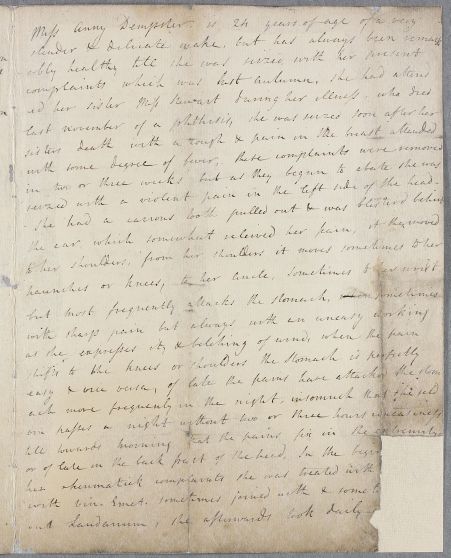 Miss Anny Dempster is 24 years of age of a very
slender & delicate make, but has always been remark
ably healthy till she was seized with her present
complaints which was last Autumn, she had attend
ed her sister Miss Stewart during her illness, who died
last november of a phthisis, she was seized soon after her
sisters death with a cough & pain in the breast attended
with some degree of fever, these complaints were removed
in two or three weeks but as they began to abate she was
seized with a violent pain in the left side of the head
She had a carious tooth pulled out & was blister'd behind
the ear, which somewhat relieved her pain, it then moved
to her shoulders, from her shoulders it moves sometimes to her
haunches or knees, to her ancle, sometimes to her wrist
but most frequently attacks the stomach, sometimes
with sharp pain but always with an uneasy working
as she expresses it, & belching of wind, when the pain
shifts to the knees or shoulders the stomach is perfectly
easy & vice versa, of late the pains have attack'd the stom
ach more frequently in the night, insomuch that she seld
om passes a night without two or three hours uneasiness
till towards morning that the pains fix in the extremities
or of late in the back part of the head. In the begin
her rheumatick complaints she was treated with
with vin. Emet. sometimes joined with & somet
out Laudanum, she afterwards took daily